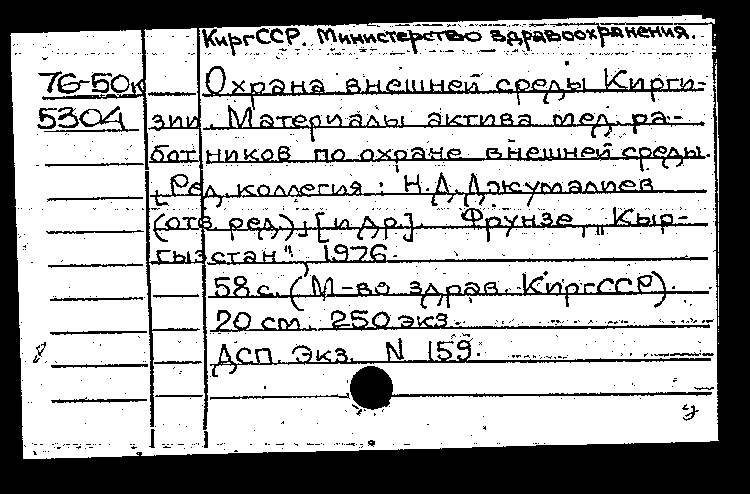 КиргССР. Министерство здравоохранения.
76-50к Охрана внешней среды Кирги-
5304 зии. Материалы актива мед. ра-
ботников по охране внешней среды.
[Ред. коллегия: Н.Д. Джумалиев
(отв. ред.), [и др.]. Фрунзе, „Кыр-
гызстан", 1976.
58 с. (М-во здрав. КиргССР).
20 см. 250 экз.
8 ДСП. Экз. N 159.
у